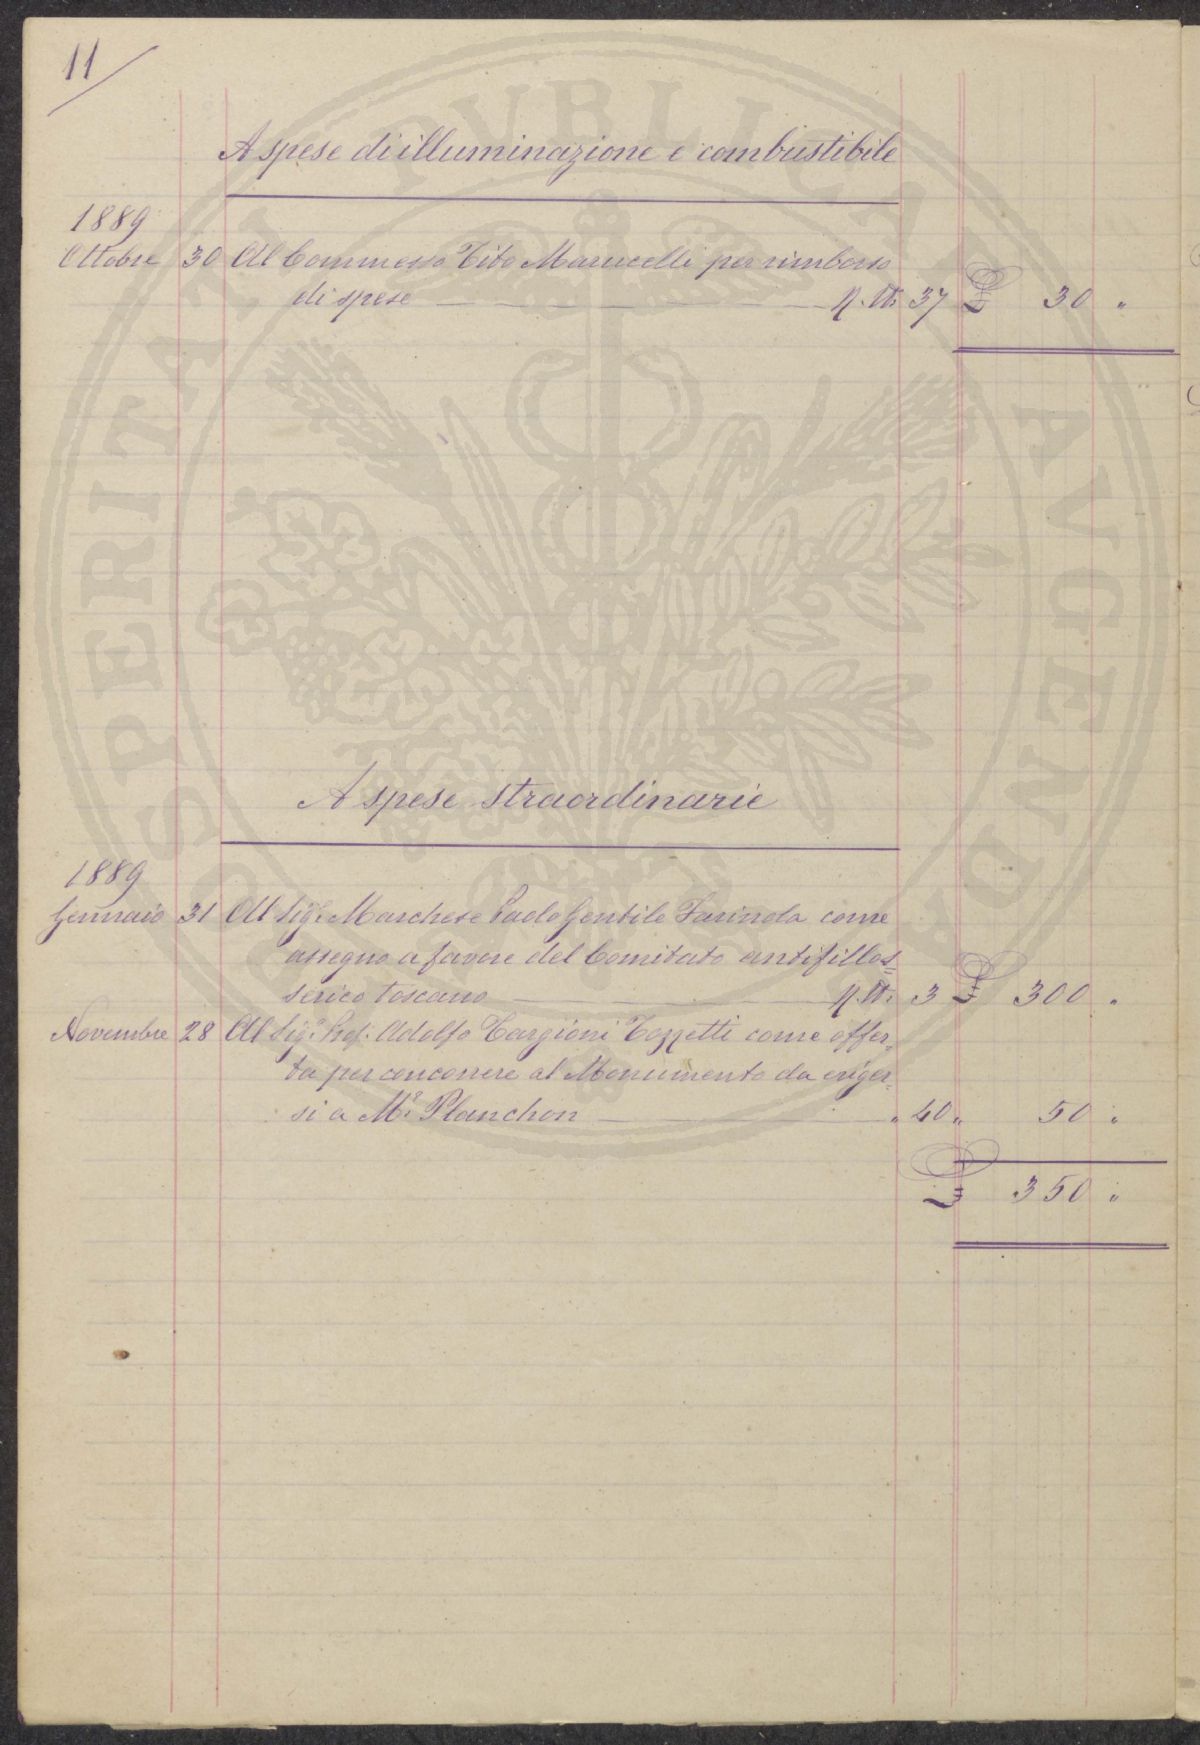 11
A spese di illuminazione e combustibile
1889
Ottobre 30 Al Commesso Tito Marucelli per rimborso
di spese N. 37 £ 30 "
A spese straordinarie
1889
Gennaio 31 Al Sigr. Marchese Paolo Gentile Farinola come
assegno a favore del Comitato antifillos=
serico toscano 3 £ 300 "
Novembre 28 Al Sigr. Prof. Adolfo Targioni Tozzetti come offer=
ta per concorrere al Monumento da eriger=
si a Mr. Planchon " 40 " 50 "
£ 350 "
PROSPERITATI PVBLICAE AVGENDAE